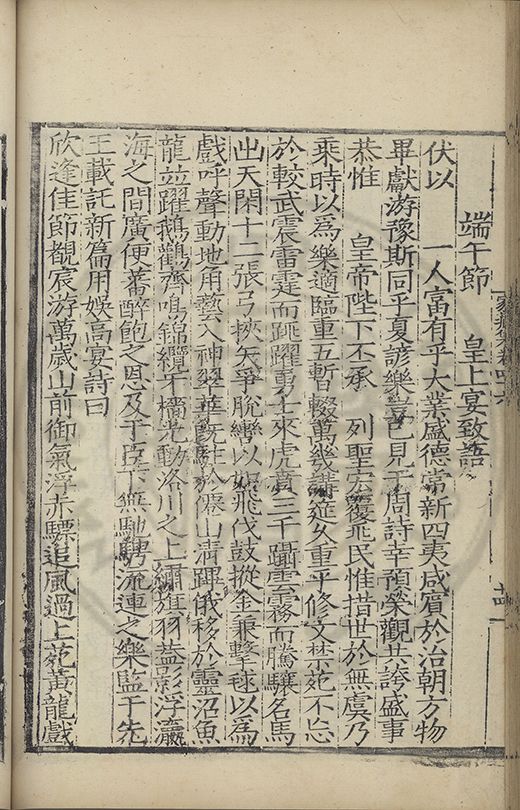 端午節　皇上宴致語
伏以　一人富有乎大業盛德常新四夷咸賓於治朝方物
畢獻游豫斯同乎夏諺樂豈已見于周詩幸預榮觀共誇盛事
恭惟　皇帝陛下丕承　列聖宏覆兆民惟措世於無虞乃
乘時以爲樂適臨重五暫輟萬幾講筵久重乎修文禁苑不忘
於較武震雷霆而跳躍勇士來虎賁三千躡雲霧而騰驤名馬
出天閑十二張弓挾矢爭脫轡以如飛伐鼓摐金兼擊毬以爲
戲呼聲動地角藝入神翠華旣駐於僊山清蹕俄移於靈沼魚
龍竝躍鵝鸛齊鳴錦纜牙檣光動洛川之上繡旗羽葢影浮瀛
海之間廣使蕃醉飽之恩及于臣下無馳騁流連之樂監于先
王載託新篇用娛高宴詩曰
欣逢佳節覩宸游萬歲山前御氣浮赤驃追風過上苑黃龍戲